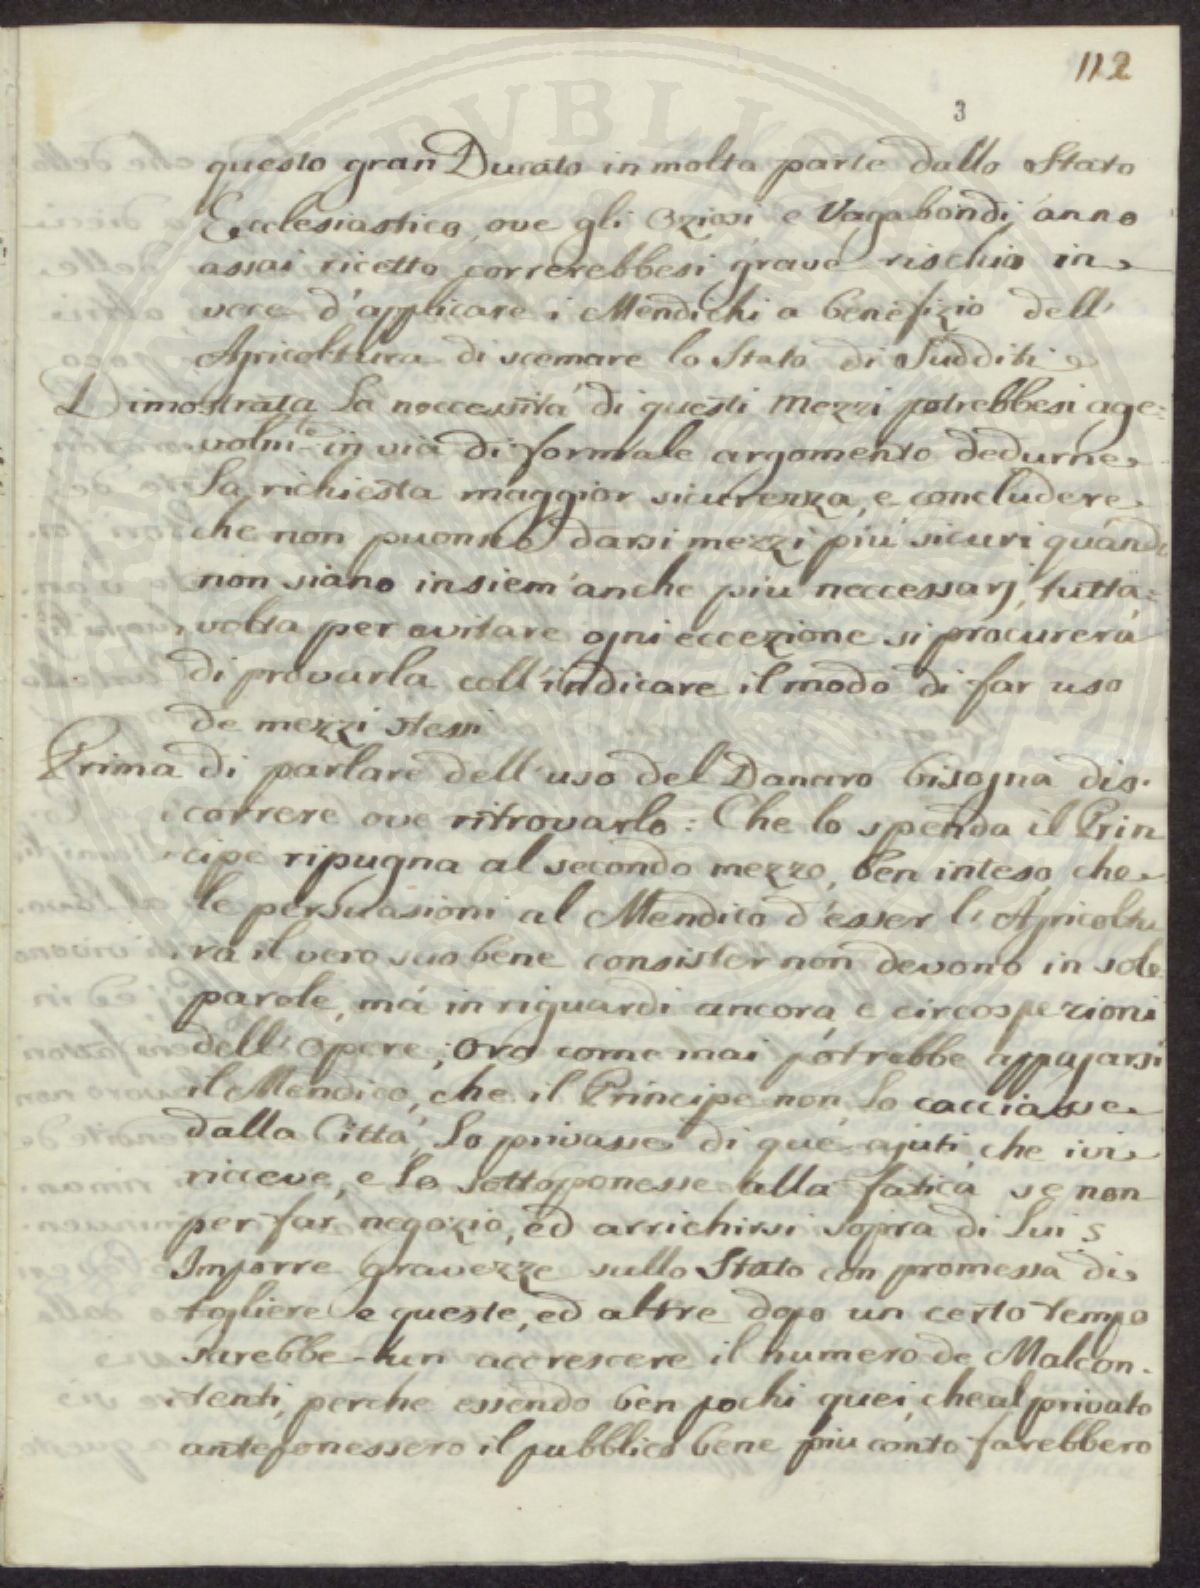 112
3
questo gran Ducato in molta parte dallo Stato
Ecclesiastico, ove gli Oziosi e Vagabondi, ànno
assai ricetto correrebbesi grave rischio in
vece d'applicare i Mendichi a benefizio dell'
Agricoltura di scemare lo Stato di Sudditi
Dimostrata la neccessità di questi Mezzi potrebbesi age=
volm.te in via di formale argomento dedurne
la richiesta maggior sicurezza, e concludere
che non puonno darsi mezzi più sicuri quando
non siano insiem' anche piu neccessarj, tutta=
volta per evitare ogni eccezione si procurerà
di provarla coll' indicare il modo di far uso
de mezzi stessi
Prima di parlare dell' uso del Danaro bisogna dis-
correre ove ritrovarlo: Che lo spenda il Prin
cipe ripugna al secondo mezzo, ben inteso che
le persuasioni al Mendico d'esser l' Agricoltu
ra il vero suo bene consister non devono in sole
parole, mà in riguardi ancora, e circospezioni
dell' Opere; Ora come mai potrebbe appagarsi
il Mendico, che il Principe non lo cacciasse
dalla Città, lo privasse di què ajuti, che ivi
ricceve, e lo sottoponesse alla fatica se non
per far negozio, ed arrichirsi sopra di Lui
Imporre gravezze sullo Stato con promessa di
togliere e queste, ed altre dopo un certo tempo
sarebbe un accrescere il numero de Malcon-
tenti, perche essendo ben pochi quei, che al privato
anteponessero il pubblico bene piu conto farebbero
PVBLIC